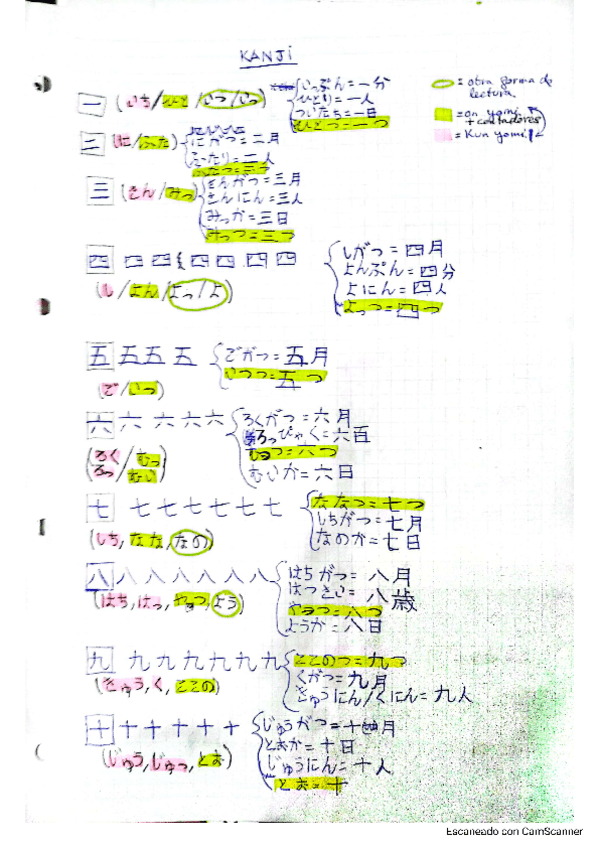 KANJI
一 (いち/ひと/いつ/いっ)
いっぷん=一分
ひとり=一人
ついたち=一日
ひとつ=一つ
= otra forma de lectura.
= on yomi + contadores
= Kun yomi
二 (に/ふた)
にがつ=二月
ふたり=二人
ふたつ=二つ
三 (さん/みっ)
さんがつ=三月
さんにん=三人
みっか=三日
みっつ=三つ
四 四 四 四 四 四 四 四
(し/よん/よっ/よ)
しがつ=四月
よんぷん=四分
よにん=四人
よっつ=四つ
五 五 五 五 五
(ご/いつ)
ごがつ=五月
いつつ=五つ
六 六 六 六 六 六
(ろく/むっ
ろっ/むい)
ろくがつ=六月
ろっぴゃく=六百
むっつ=六つ
むいか=六日
七 七 七 七 七 七 七
(しち, なな, なの)
ななつ=七つ
しちがつ=七月
なのか=七日
八 八 八 八 八 八 八
(はち, はっ, やっつ, よう)
はちがつ=八月
はっさい=八歳
やっつ=八つ
ようか=八日
九 九 九 九 九 九 九 九
(きゅう, く, ここの)
ここのつ=九つ
くがつ=九月
きゅうにん/くにん=九人
十 十 十 十 十 十
(じゅう, じゅっ, とお)
じゅうがつ=十月
とおか=十日
じゅうにん=十人
とお=十
Escaneado con CamScanner